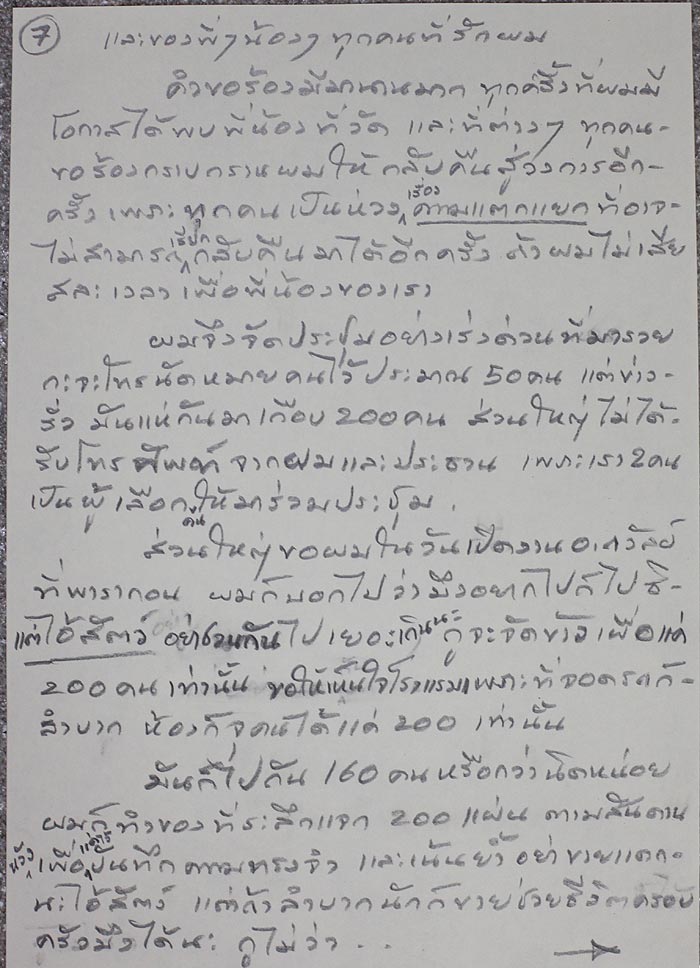 7
และของพี่ๆน้องๆ ทุกคนที่รักผม
คำขอร้องมีมานานมาก ทุกครั้งที่ผมมี
โอกาสได้พบพี่น้องที่วัด และที่ต่างๆ ทุกคน-
ขอร้องกราบกรานผมให้กลับคืนสู่วงการอีก-
ครั้ง เพราะทุกคนเป็นห่วงเรื่องความแตกแยกที่อาจ-
ไม่สามารถเรียกกลับคืนมาได้อีกครั้ง ถ้าผมไม่เสีย
สละเวลาเพื่อพี่น้องของเรา
ผมจึงจัดประชุมอย่างเร่งด่วนที่มารวย
กะจะโทรนัดหมายคนไว้ประมาณ 50 คน แต่ข่าว-
รั่ว มันแห่กันมาเกือบ 200 คน ส่วนใหญ่ไม่ได้-
รับโทรศัพท์จากผมและประธาน เพราะเรา 2 คน
เป็นผู้เลือกคนให้มาร่วมประชุม.
ส่วนใหญ่ขอผมในวันเปิดงาน อ.ถวัลย์
ที่พารากอน ผมก็บอกไปว่ามึงอยากไปก็ไปซิ-
แต่ไอ้สัตว์ อย่าชวนกันไปเยอะเกินนะ กูจะจัดข้าวเผื่อแค่
200 คนเท่านั้น ขอให้เห็นใจโรงแรมเพราะที่จอดรถก็
ลำบาก ห้องก็จุคนได้แค่ 200 เท่านั้น
มันก็ไปกัน 160 คนหรือกว่านิดหน่อย
ผมก็ทำของที่ระลึกแจก 200 แผ่น ตามสันดาน
เพื่อบันทึกความทรงจำ และเน้นย้ำอย่าขายแดก-
นะไอ้สัตว์ แต่ถ้าลำบากนักก็ขายช่วยชีวิตครอบ
ครัวมึงได้นะ กูไม่ว่า . .